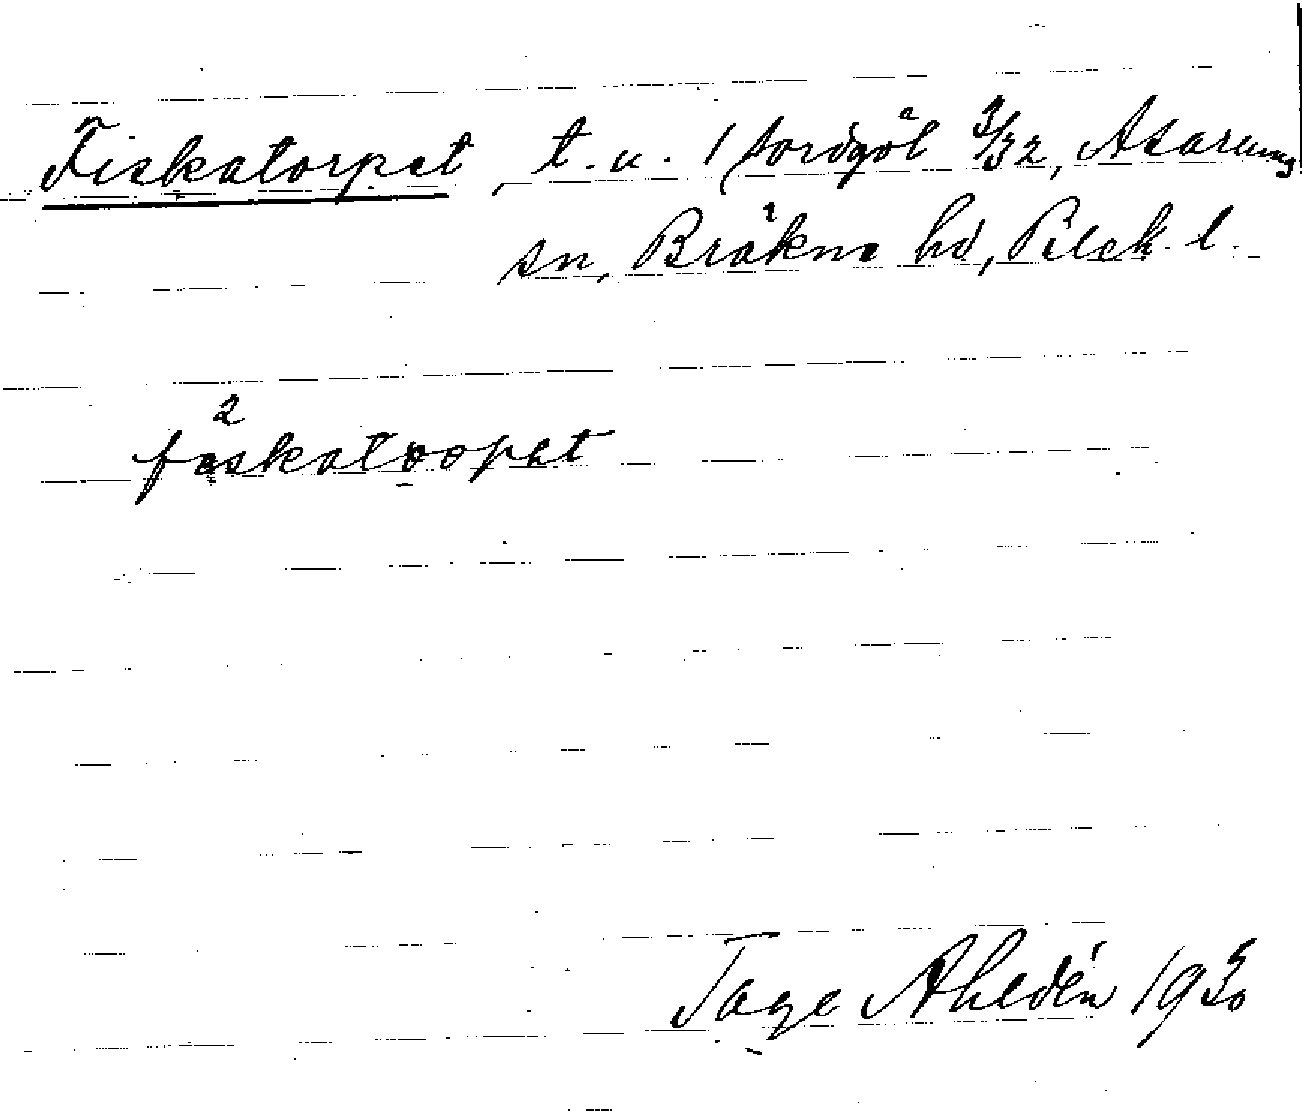 Fiskatorpet, t. u. Nordgöl 3/32, Asarums
sn, Bräkne hd, Blek. l.
2
fəskatoopet
Tage Ahldén 1930